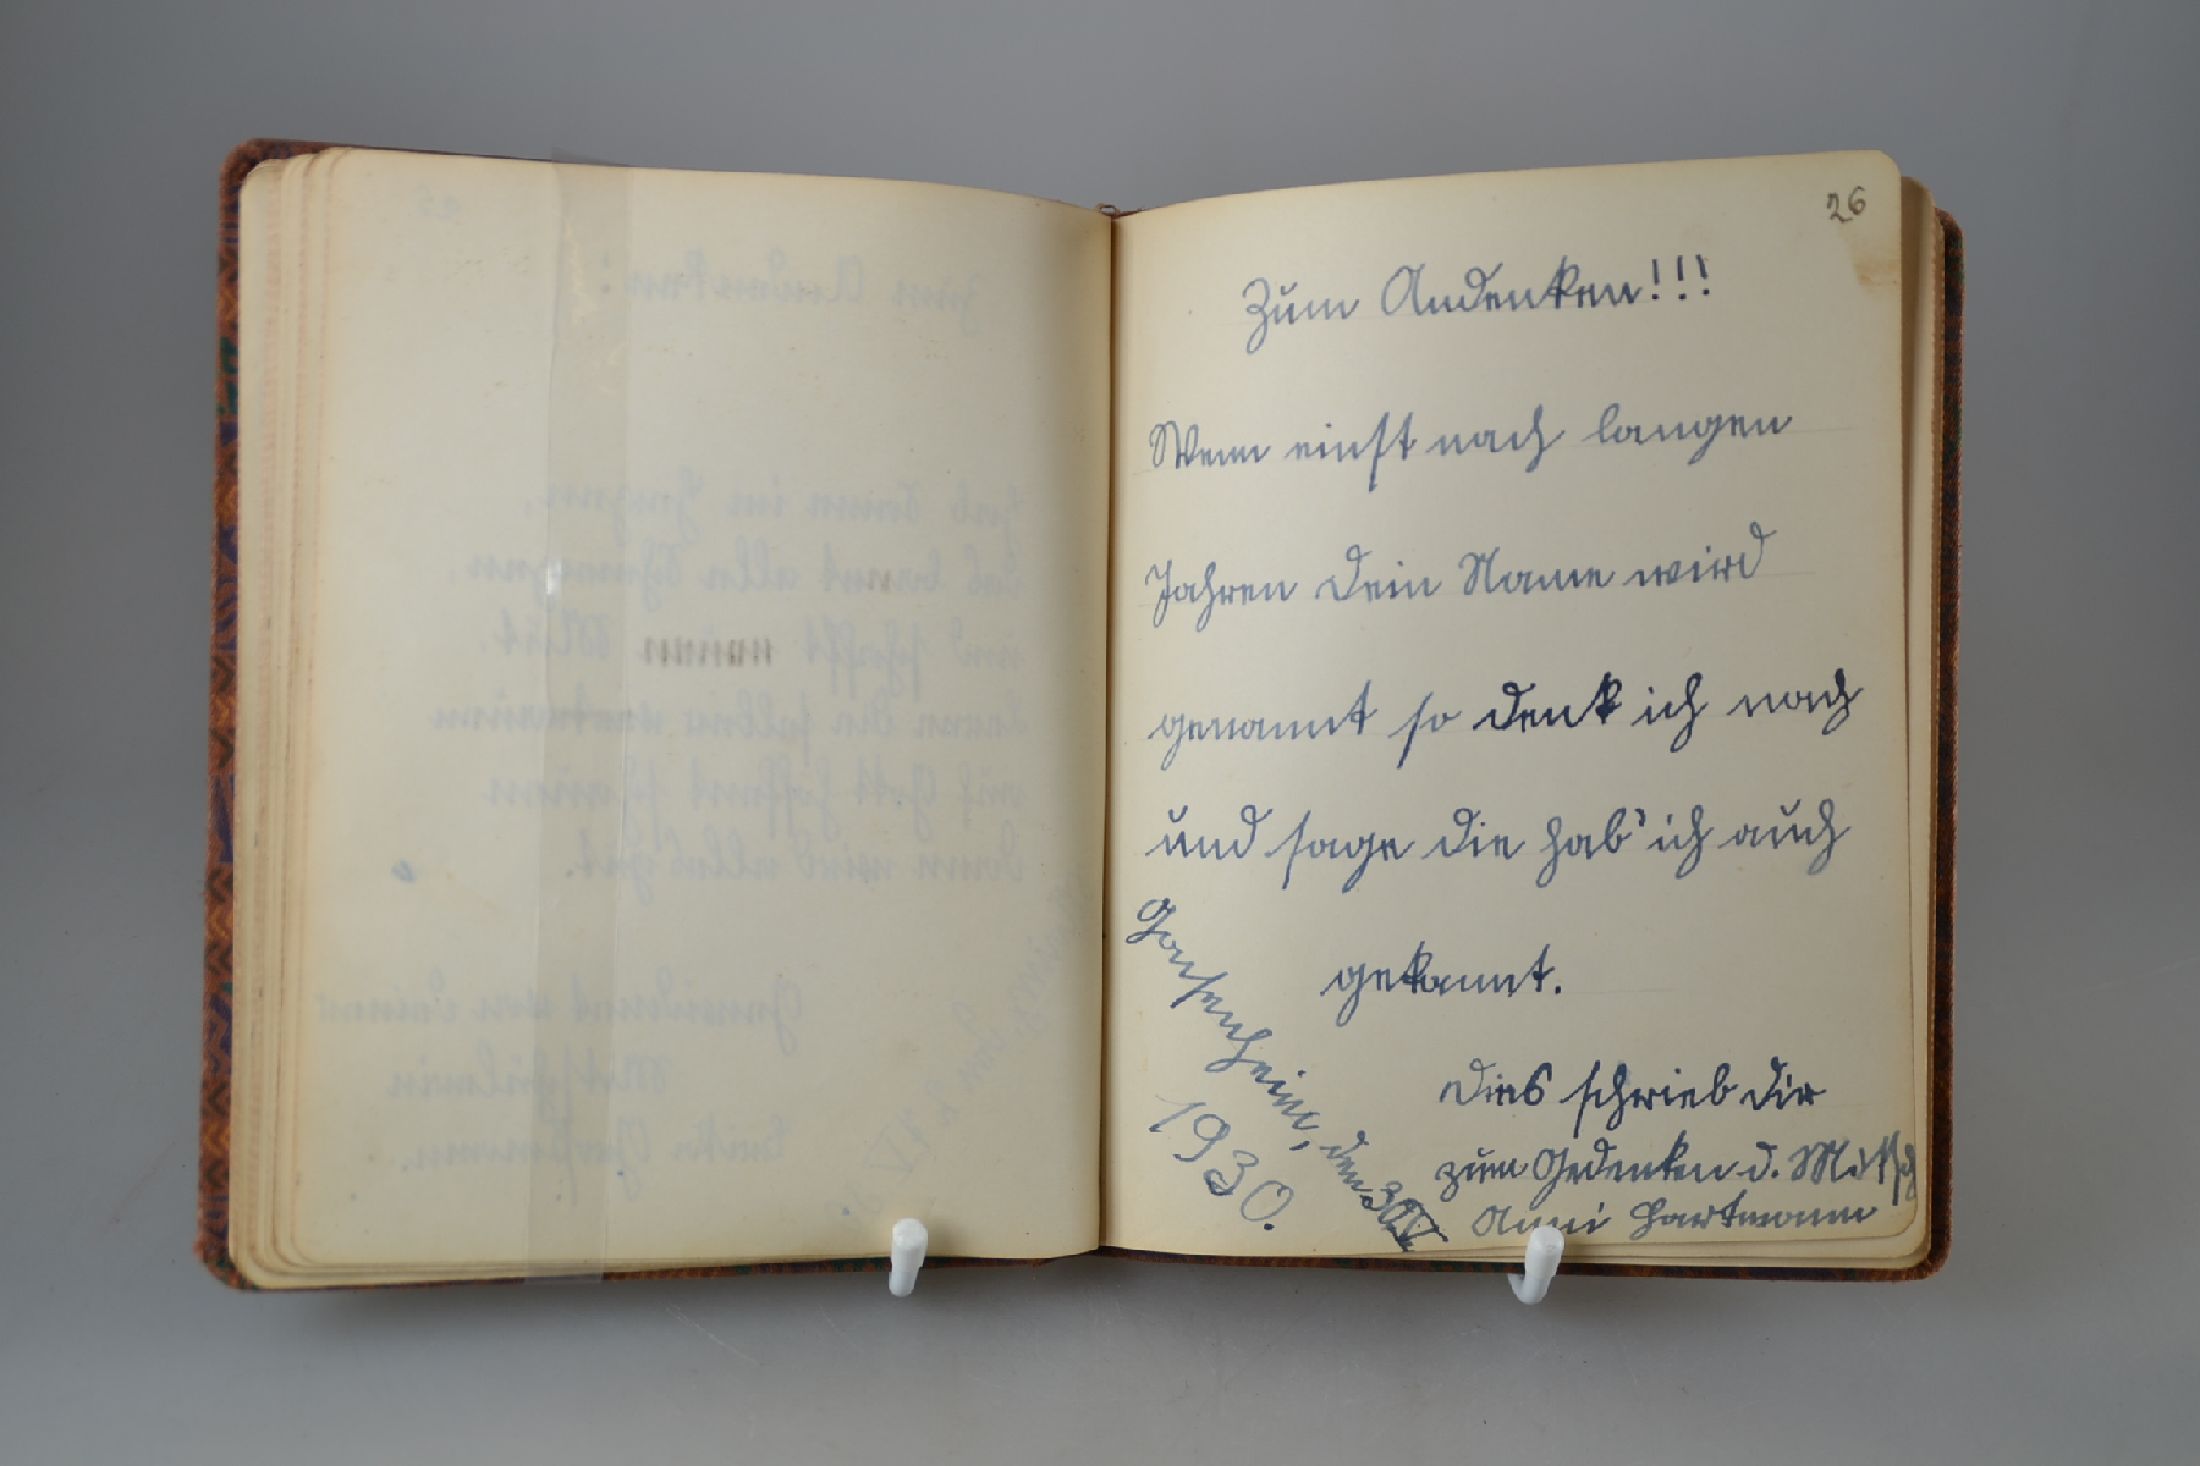 26
Zum Andenken!!!
Wenn einst nach langen
Jahren dein Name wird
genannt so denk ich nach
und sage die hab' ich auch
gekannt.
Gonsenheim, den 30 IV
1930.
Dies schrieb dir
zum Gedenken d. Mitsch
Anni Hartmann